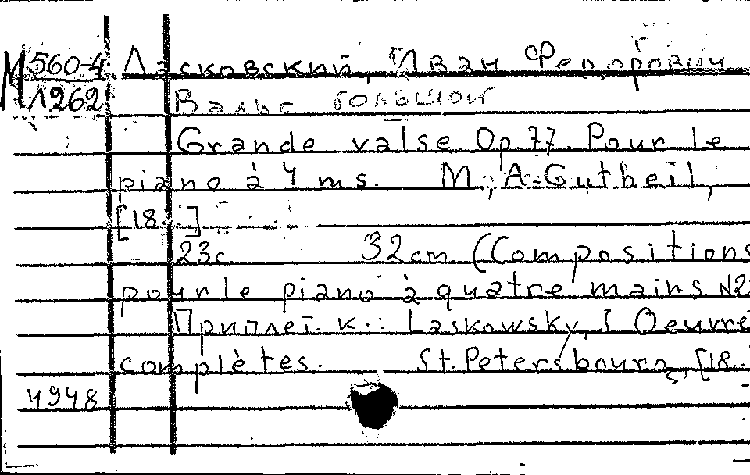 М 560-4 Ласковский, Иван Федорович
Л262 Вальс большой
Grande valse Op 77. Pour le
piano à 4 ms. M., A. Gutheil,
[18..]
23с. 32cm (Compositions
pour le piano à quatre mains №2
Приплет. к.: Laskowsky, I Oeuvre
complètes. St. Petersbourg, [18..
4948